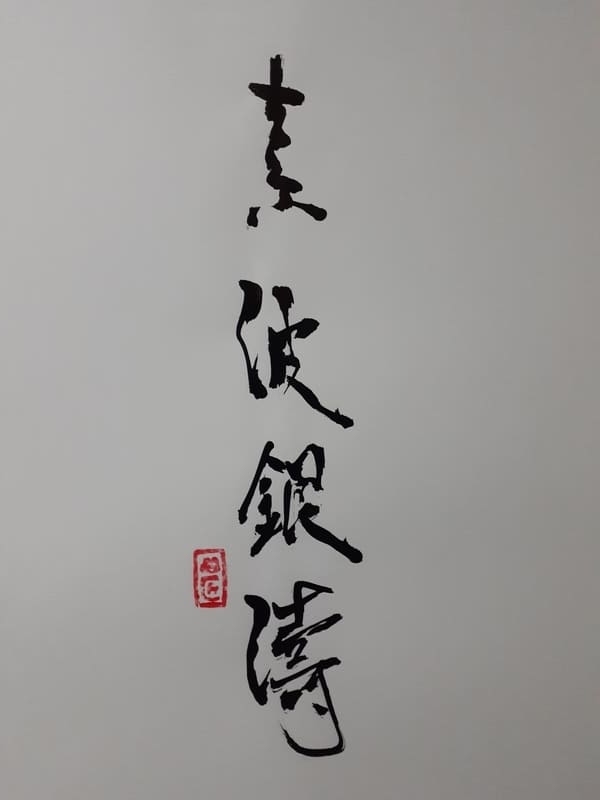 素波銀濤